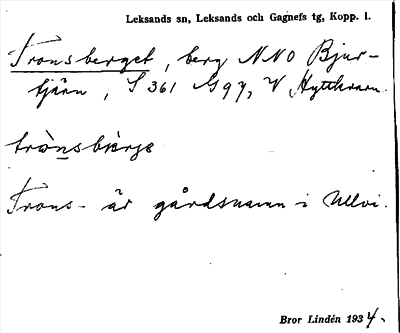 Leksands sn, Leksands och Gagnefs tg, Kopp. l.
Tronsberget, berg NNO Bjur-
tjärn, S 361 G 97, V Hyttkvarn.
trò̀nsbærjə
Trons- är gårdsnamn i Ullvi.
Bror Lindén 1934.